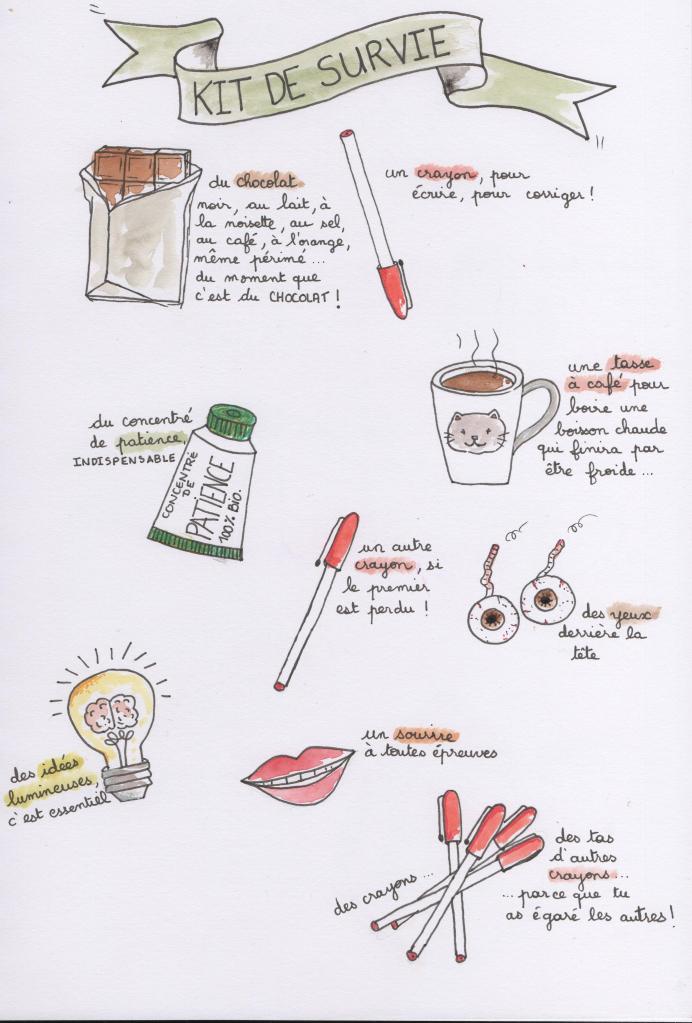 KIT DE SURVIE
du chocolat
noir, au lait, à
la noisette, au sel,
au café, à l'orange,
même périmé...
du moment que
c'est du CHOCOLAT !
un crayon, pour
écrire, pour corriger !
une tasse
à café pour
boire une
boisson chaude
qui finira par
être froide...
du concentré
de patience,
INDISPENSABLE
CONCENTRÉ
DE
PATIENCE
100% BIO.
un autre
crayon, si
le premier
est perdu !
des yeux
derrière la
tête
des idées
lumineuses,
c'est essentiel
un sourire
à toutes épreuves
des crayons...
des tas
d'autres
crayons...
...parce que tu
as égaré les autres !